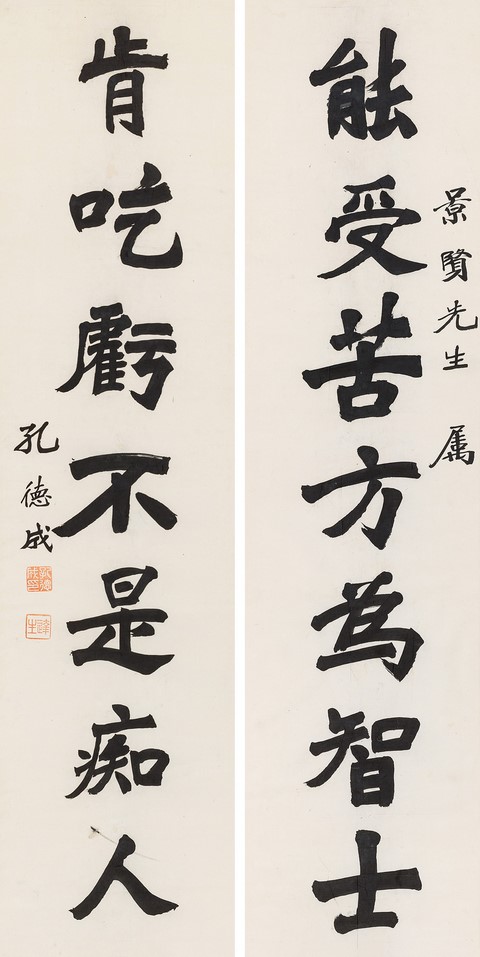 景賢先生 属
能受苦方為智士
肯吃虧不是痴人
孔德成